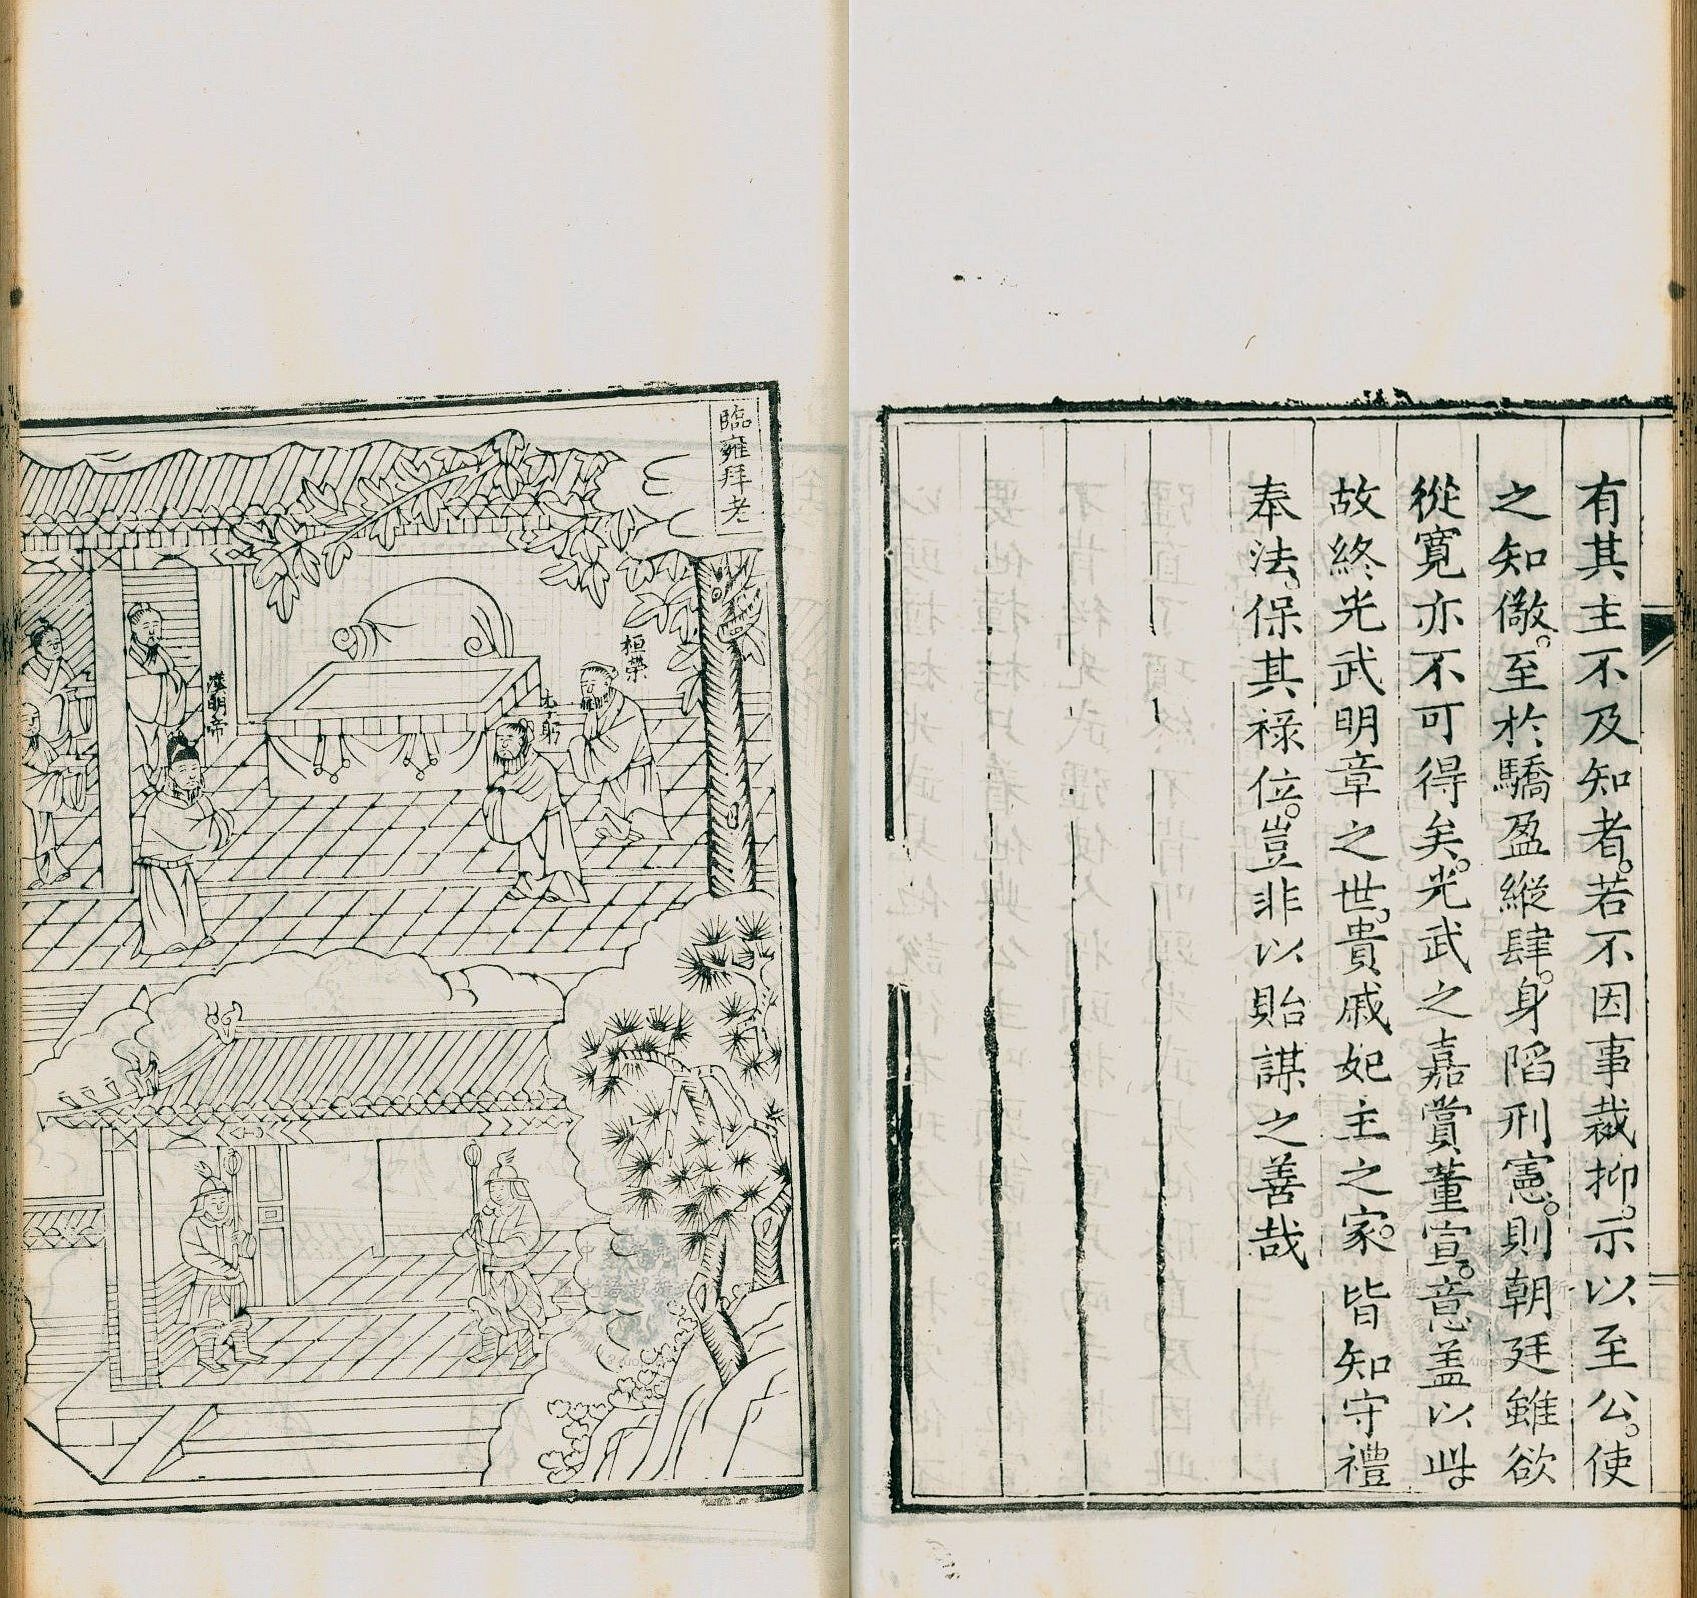 有其主不及知者。若不因事裁抑。示以至公。使
之知儆。至於驕盈縱肆。身陷刑憲。則朝廷雖欲
從寬亦不可得矣。光武之嘉賞董宣。意盖以此。
故終光武明章之世。貴戚妃主之家。皆知守禮
奉法。保其祿位。豈非以貽謀之善哉
臨雍拜老
桓榮
李躬
漢明帝